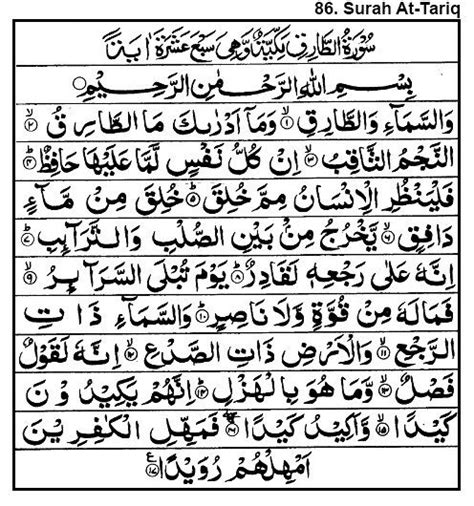 86. Surah At-Tariq
سُوْرَةُ الطَّارِقِ مَكِّيَّةٌ وَّهِيَ سَبْعَ عَشَرَةَ اٰيَةً
بِسْمِ اللهِ الرَّحْمٰنِ الرَّحِيْمِ
وَالسَّمَآءِ وَالطَّارِقِ ۙ‏﴿۱﴾ وَمَاۤ اَدْرٰىكَ مَا الطَّارِقُ ۙ‏﴿۲﴾
النَّجْمُ الثَّاقِبُ ۙ‏﴿۳﴾ اِنْ كُلُّ نَفْسٍ لَّمَّا عَلَيْهَا حَافِظٌ ؕ‏﴿۴﴾
فَلْيَنْظُرِ الْاِنْسَانُ مِمَّ خُلِقَ ؕ‏﴿۵﴾ خُلِقَ مِنْ مَّآءٍ
دَافِقٍ ۙ‏﴿۶﴾ يَّخْرُجُ مِنْۢ بَيْنِ الصُّلْبِ وَالتَّرَآىِٕبِ ؕ‏﴿۷﴾
اِنَّهٗ عَلٰى رَجْعِهٖ لَقَادِرٌ ؕ‏﴿۸﴾ يَوْمَ تُبْلَى السَّرَآىِٕرُ ۙ‏﴿۹﴾
فَمَا لَهٗ مِنْ قُوَّةٍ وَّلَا نَاصِرٍ ؕ‏﴿۱۰﴾ وَالسَّمَآءِ ذَاتِ
الرَّجْعِ ۙ‏﴿۱۱﴾ وَالْاَرْضِ ذَاتِ الصَّدْعِ ۙ‏﴿۱۲﴾ اِنَّهٗ لَقَوْلٌ
فَصْلٌ ۙ‏﴿۱۳﴾ وَّمَا هُوَ بِالْهَزْلِ ؕ‏﴿۱۴﴾ اِنَّهُمْ يَكِيْدُوْنَ
كَيْدًا ۙ‏﴿۱۵﴾ وَّاَكِيْدُ كَيْدًا ۚۖ‏﴿۱۶﴾ فَمَهِّلِ الْكٰفِرِيْنَ
اَمْهِلْهُمْ رُوَيْدًا ﴿۱۷﴾ ع